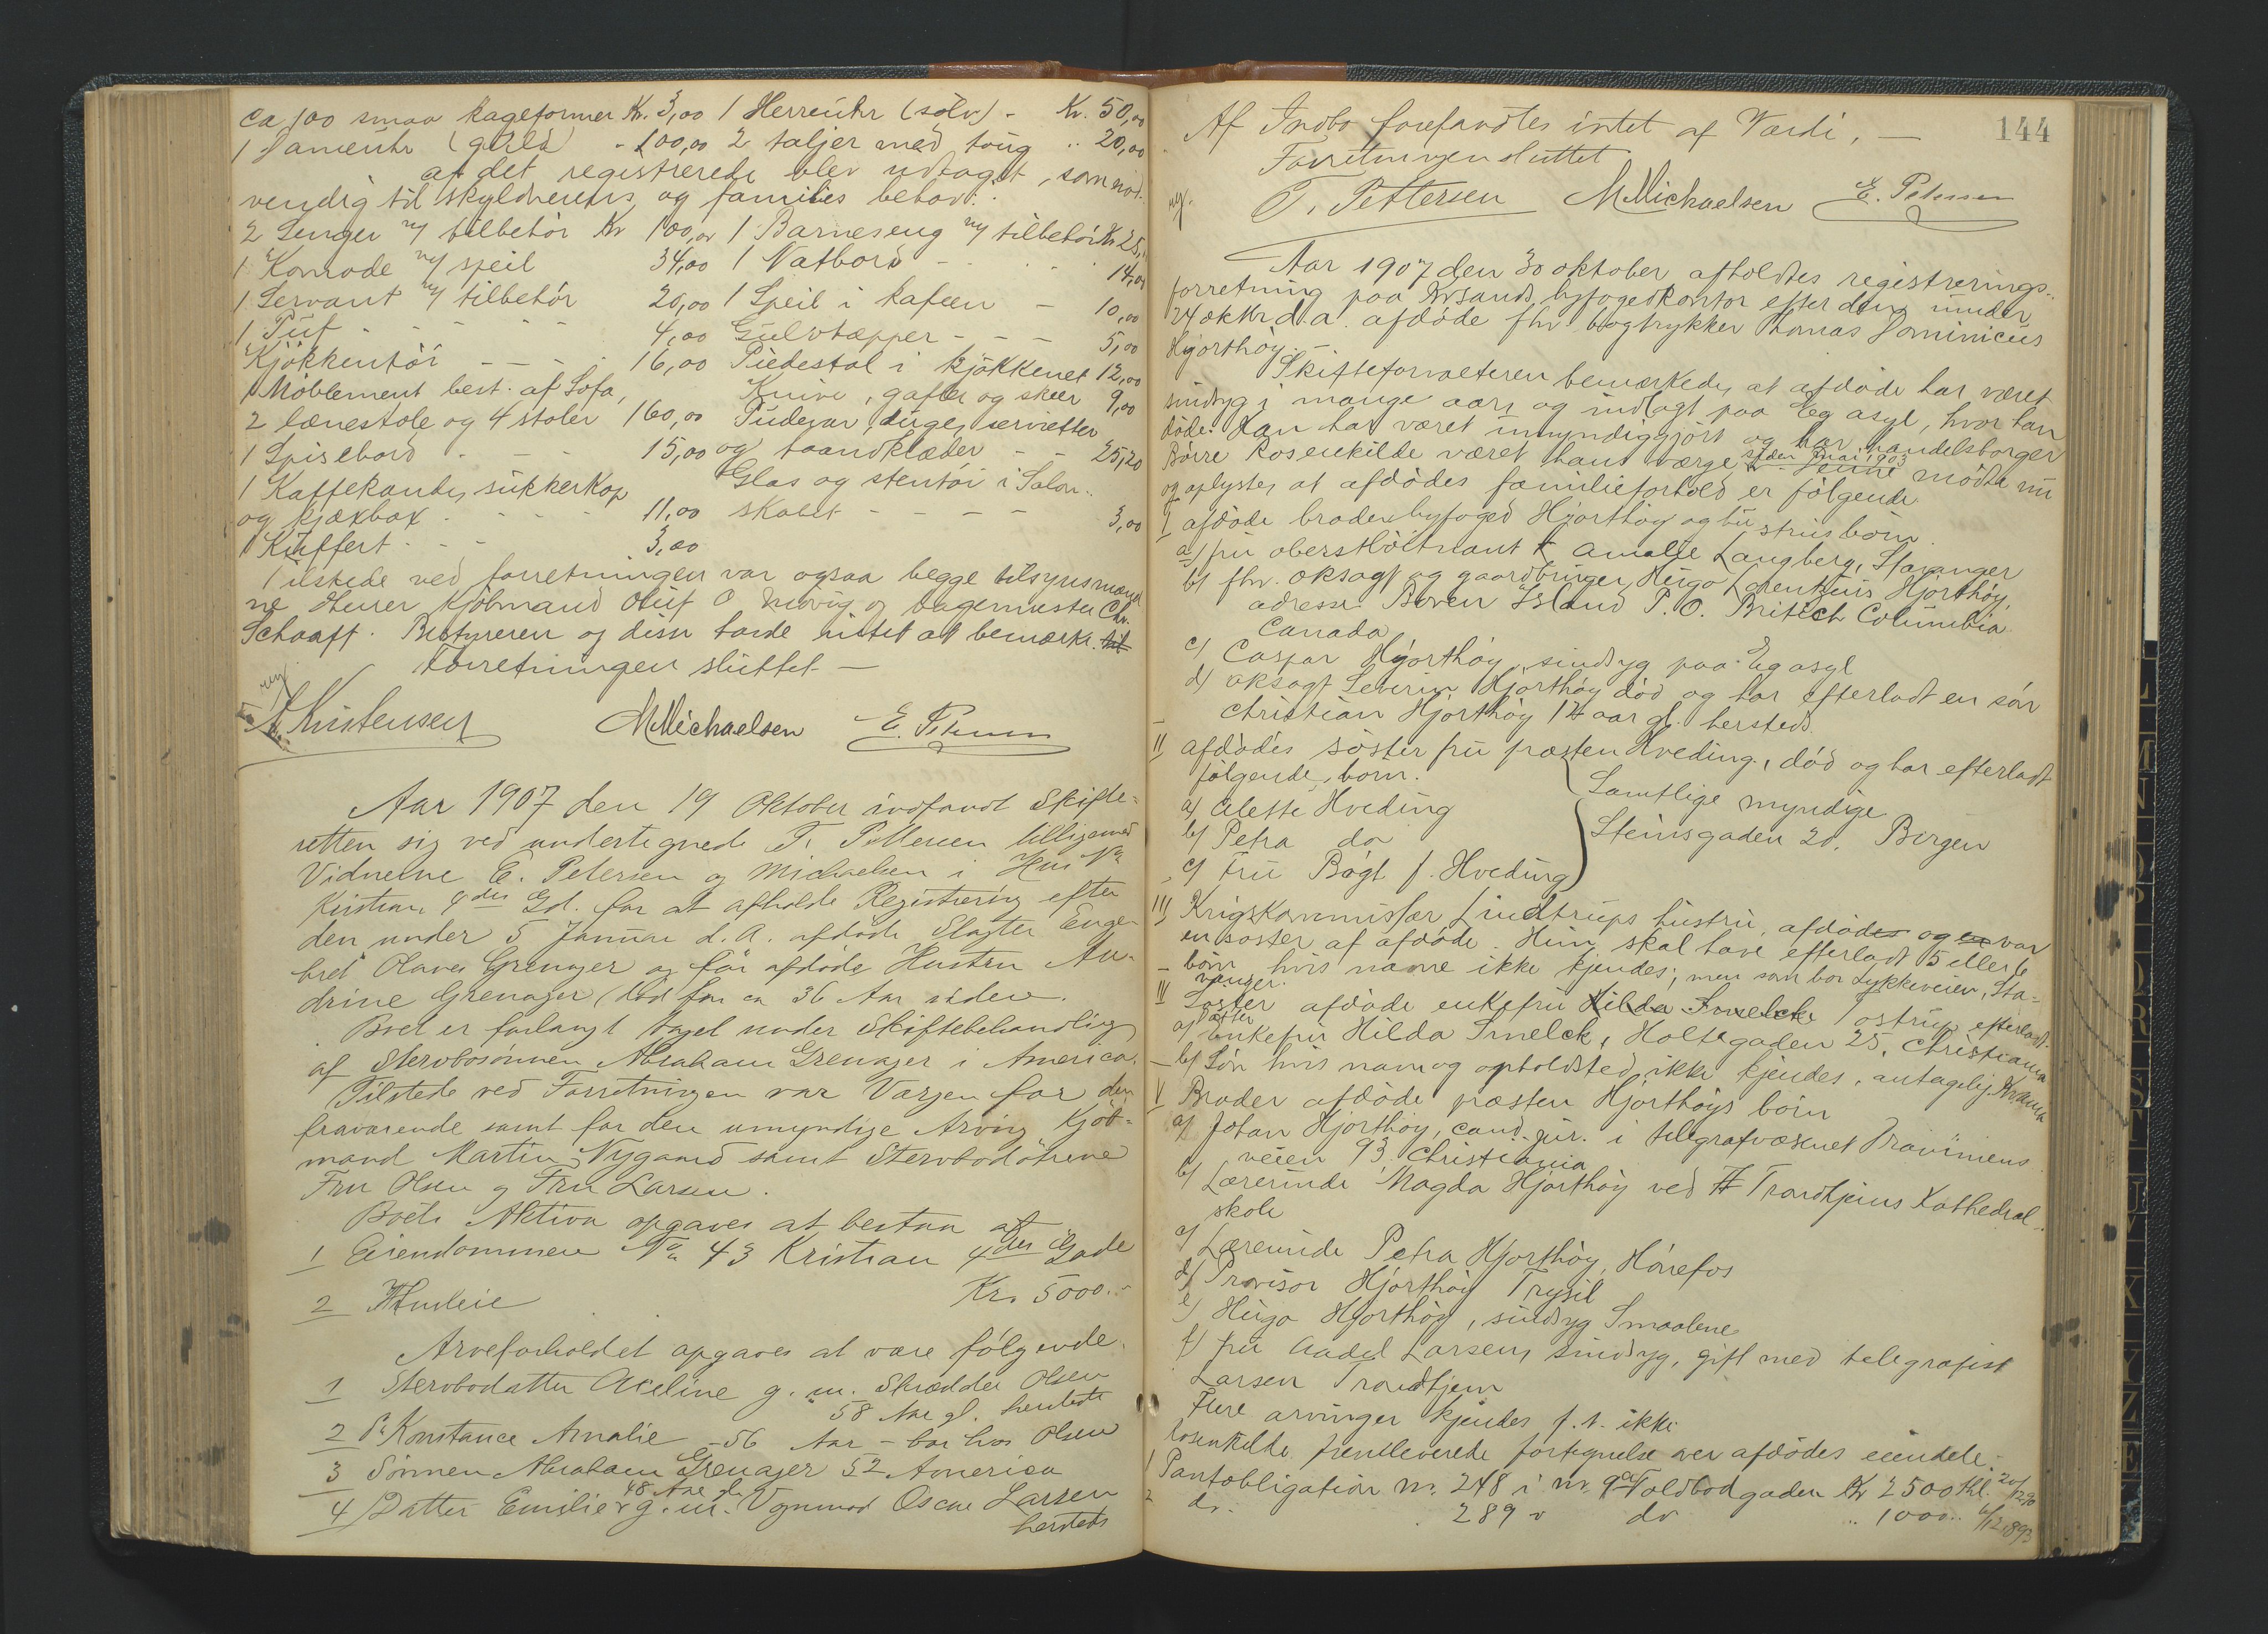 ca 100 smaa kageformer Kr. 3,00 1 Herreuhr (sølv) - Kr. 50,00
1 Dameuhr (guld) - 100,00 2 taljer med toug .. 20,00
af det registrerede blev udtaget, som nød-
vendig til skyldnerens og families behov:
2 Senger m/ tilbehør Kr 100,00 1 Barneseng m/ tilbehør Kr 25,
1 Komode m/ speil 34,00 1 Natbord - 14,00
1 Servant m/ tilbehør 20,00 1 Speil i kafeen - 10,00
1 Puf - - - - 4,00 Gulvtæpper - - - 5,00
Kjøkkentøi - - - 16,00 Piedestal i kjøkkenet 12,00
1 Møblement best. af Sofa, Knive, gafler og skeer 9,00
2 lænestole og 4 stoler 160,00 Pudevar, duger, servietter
1 Spisebord - - - 15,00 og haandklæder - - 25,20
1 Kaffekande, sukkerkop Glas og stentøi i Salon-
og kjæxbox - - - 11,00 skabet - - - - 3,00
1 Kuffert - - - 3,00
Tilstede ved forretningen var ogsaa begge tilsynsmænd
ne Herrer kjøbmand Oluf O og bagermester Chr.
Schaaft. Bestyreren og disse havde intet at bemærke.
Forretningen sluttet —
A. Kristensen MMichaelsen E. Petersen
Aar 1907 den 19 Oktober indfandt Skifte-
retten sig ved undertegnede T. Pettersen tilligemed
Vidnerne E. Petersen og Michaelsen i Hus No
Kristian 4des Gd. for at afholde Registrering efter
den under 5 Januar d.A. afdøde Slagter Enge-
bret Olaves Grenager og før afdøde Hustru An-
drine Grenager (død for ca 36 Aar siden.
Boet er forlangt taget under Skiftebehandling
af Stervbosønnen Abraham Grenager i America.
Tilstede ved Forretningen var Værgen for den
fraværende samt for den umyndige Arving Kjøb-
mand Martin Nygaard samt Stervbodøtrene
Fru Olsen og Fru Larsen.
Boets Aktiva opgaves at bestaa af
1 Eiendommen No 43 Kristian 4des Gade
Kr. 5000.-
2 Husleie
Arveforholdet opgaves at være følgende
1 Stervbodatter Aceline g. m. Skrædder Olsen
58 Aar gl. hersteds
2 Do Konstance Amalie - 56 Aar - bor hos Olsen
3 Sønnen Abraham Grenager 52 America
48 Aar gl.
4 Datter Emilie g. m. Vognmand Oscar Larsen
hersteds
144
Af Indbo forefandtes intet af Værdi. —
Forretningen sluttet
T. Pettersen MMichaelsen E. Petersen
Aar 1907 den 30 oktober afholdtes registrerings-
forretning paa Krsands byfogedkontor efter den under
24 oktbr d.a. afdøde fhv. bogtrykker Thomas Dominicus
Hjorthøy. —
Skifteforvalteren bemærkede, at afdøde har været
sindsyg i mange aar, og indlagt paa Eg asyl, hvor han
døde. Han har været umyndiggjort og har handelsborger
Børre Rosenkilde været hans værge siden mai 1903. Denne mødte nu
og oplyste, at afdødes familieforhold er følgende
I afdøde broder byfoged Hjorthøy og hustrus børn
a) fru oberstløitnant Amalie Langberg, Stavanger
b) fhv. oksagf og gaardbruger Hugo Lorentzius Hjorthøy,
adresse Bowen Island P.O. British Columbia
Canada
c) Caspar Hjorthøy, sindsyg paa Eg asyl
d) oksagf Severin Hjorthøy død og har efterladt en søn
Christian Hjorthøy 14 aar gl. hersteds
II afdødes søster fru præsten Hveding, død og har efterladt
følgende børn. Samtlige myndige
a) Alette Hveding Steinsgaden 20. Bergen
b) Petra do
c) Fru Bøgt f. Hveding
III Krigskommissær Lindtrups hustru, afdød og var
en søster af afdøde. Hun skal have efterladt 5 eller 6
børn hvis navne ikke kjendes, men som bor Lykkeveien, Sta-
vanger.
IV Søster afdøde enkefru Hilda Smelck Tostrup efterladt
a) Datter Enkefru Hilda Smelck, Holtegaden 25. Christiania
b) Søn hvis navn og opholdsted ikke kjendes, antagelig Kr.ania
V Broder afdøde præsten Hjorthøys børn
a) Johan Hjorthøy, cand. jur. i telegrafvæsenet Drammens
veien 93 Christiania
b) Lærerinde Magda Hjorthøy ved Trondhjems Kathedral-
skole
c) Lærerinde Petra Hjorthøy, Hønefos
d) Provisor Hjorthøy Trysil
e) Hugo Hjorthøy, sindsyg Smaalene
f) fru Aadel Larsen, sindsyg, gift med telegrafist
Larsen Trondhjem
Flere arvinger kjendes f. t. ikke
Rosenkilde fremleverede fortegnelse over afdødes eiendele:
1 Pantobligation nr. 248 i nr. 9a Toldbodgaden Kr 2500 thl. 20/12 90
2 do. 289 do .. 1000.. 6/12 1893